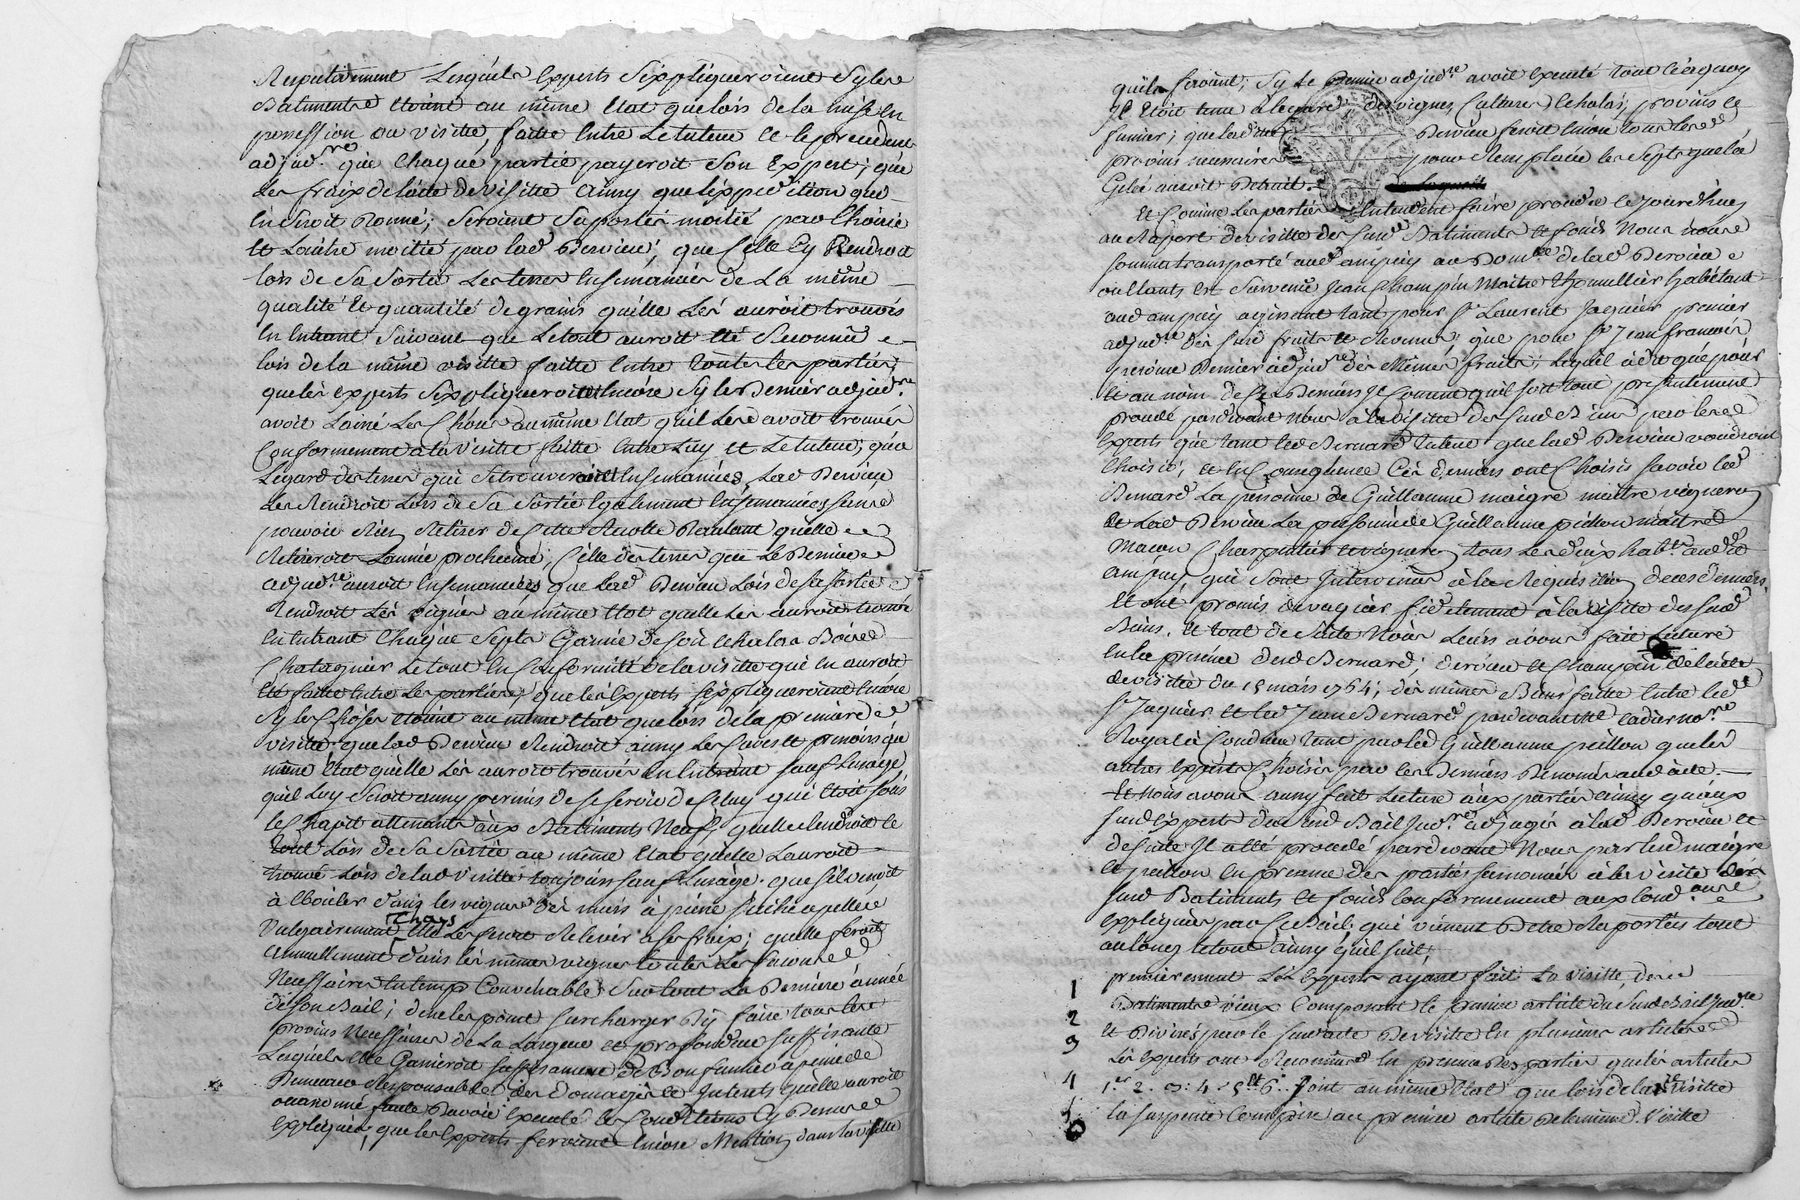 Respectivement Lesquels Experts S'expliqueroient Sy les
Batiments Etoint au même Etat que lois de la mise en
possession ou visitte faitte Entre Le tuteur et le precedent
adjud.re que Chaque partie payeroit Son Expert; que
Les fraix de l'acte de visitte ainsy que l'expedition que
En Seroit Donné; Seroient Suportés moitié par Choisie
Et L'autre moitié par lad.e Dervieu; que Celle Cy Rendroit
lois de Sa Sortie Les terres Ensemancées de La même
qualité Et quantité de grains qu'elle Les auroit trouvés
En Entrant Suivant que Letout auroit Eté Reconnu
lois de la même visitte faitte Entre toutes les parties;
que les experts S'expliqueroient Encore Sy le Dernier adjud.re
avoit Laissé Les Choses au même Etat qu'il Les avoit trouvés
Conformement a la Visitte faitte Entre Luy Et Le tuteur; qu'a
L'egard des terres qui Se trouveroient Ensemancées, Lad.e Dervieu
Les Rendroit Lors de Sa Sortie Egalement Ensemancées sans
pouvoir Rien Retirer de Cette Recolte Pendant qu'elle
Retireroit L'année prochaine, Celle des terres que Le Dernier
adjud.re auroit Ensemancées que lad.e Dervieu Lois de sa sortie
Rendroit Les vignes au même Etat quelle Les auroit trouvé
En Entrant Chaque Septs Garnie de Son Echalas Boisee
Chataignier Le tout En Conformitté de la visitte qui En auroit
Eté faitte Entre Les parties; que les Experts S'expliqueroient Encore
Sy les Choses Etoint au même Etat que lois de la premiere
visitte que lad.e Dervieu Rendroit ainsy Les Caves Et pressoirs au
même Etat qu'elle Les auroit trouvés En Entrant Sauf L'usage
qu'il Luy Seroit ainsy permis de Se Servir de Celuy qui Etoit Sous
le Chapit attenant aux Batiments Neufs quelle Rendroit le
tout Lois de Sa Sortie au même Etat quelle L'auroit
trouvé Lois de lad.e Visitte toujours sauf L'usage. que S'il venoit
à Ebouler dans les vignes Des murs à pierre Seiche apellés
Vulgairement Chars Elle Les feroit Relever a Ses fraix; quelle feroit
annuellement dans les mêmes vignes toutes Les facons
Necessaires En temps Convenable Sur tout La Derniere année
de Son Bail; de ne les point Surcharger D'y faire tous les
provins Necessaires de La Largeur Et profondeur Suffisante
Lesquels Elle Garniroit Suffisament de Bon fumier a peine de
Demeurer Responsable des Domages Et Interets qu'elle auroit
occasionné faute D'avoir executé les Conditions Cy Dessus
Expliquées, que les Experts feroient Encore Mention dans la visitte
qu'ils feroint, Sy Le Dernier adjud.re avoit Executé tout Ce a quoy
Il Etoit tenu a L'egard des vignes, Culture, Echalas, provins Et
fumier; que lad.e Dervieu feroit Encore tous les
provins necessaires pour Remplacer les Septs que la
Gelée auroit Detruit.
Et Comme Les parties Entendent faire proceder Cejourd'huy
au Raport de visitte des Susd.s Batiments Et fonds Nous nous
Sommes transporté aud. ampuy au Domicile de lad.e Dervieu
ou Etants Est Survenu Jean Champin Maitre Tonnellier habitant
aud. ampuy agissant tant pour S.r Laurent Jaquier premier
adjud.re des Susd. fruits Et Revenus, que pour S.r Jean francois
Dernier adjud.re des Mêmes fruits; Lequel a dit que pour
Et au nom de Ces Derniers Il Consent qu'il Soit tout presentement
procedé pardevant nous à la Visitte des Susd. Biens par les
Experts que tant led. Bernard Tuteur que lad. Dervieu voudront
Choisir; Et En Consequence Ces derniers ont Choisis Savoir led.
Bernard La personne de Guillaume maigre maitre vigneron
Et Lad. Dervieu La personne de Guillaume peillon maitre
Macon Charpentier Et vigneron tous Les deux hab.ts aud.
ampuy, qui Sont Intervenus à la Requisition de ces derniers,
Et ont promis de vaquer fidelement à la visite des Susd.
Biens. Et tout de Suite Nous Leurs avons fait Lecture
En la presence desd. Bernard; Dervieu Et Champin de L'acte
de visitte du 15 mars 1764; des mêmes Biens faitte Entre led.
S.r Jaquier Et led. Jean Bernard pardevant no.re
Royal à Condrieu tant par led. Guillaume peillon que les
autres Experts Choisis par les Derniers Denommés aud. acte.
Et Nous avons ainsy fait Lecture aux parties ainsy qu'aux
Susd. Experts du Susd. Bail Jud.re adjugés à lad. Dervieu Et
de Suite Il a Eté procedé pardevant Nous par lesd. maigre
Et peillon En presence des parties Susnomées à la visitte des
Susd. Batiments Et fonds Conformement aux Conditions
Expliquées par Ce Bail; qui vienent D'etre Raportées tout
au long Et tout ainsy qu'il Suit;
1 premierement Les Experts ayant fait La visitte, des
2 Batiments vieux Composant le premier article du Susd. Bail Jud.re
3 Et Divisés par le Susd. acte De visitte En plusieurs articles
Les Experts ont Reconnus En presence Des parties que les articles
4 1.er 2. 3: 4. 5 et 6. Sont au même Etat que lois de la visitte
5 la Serpente Comprise au premier article De la même visitte
6